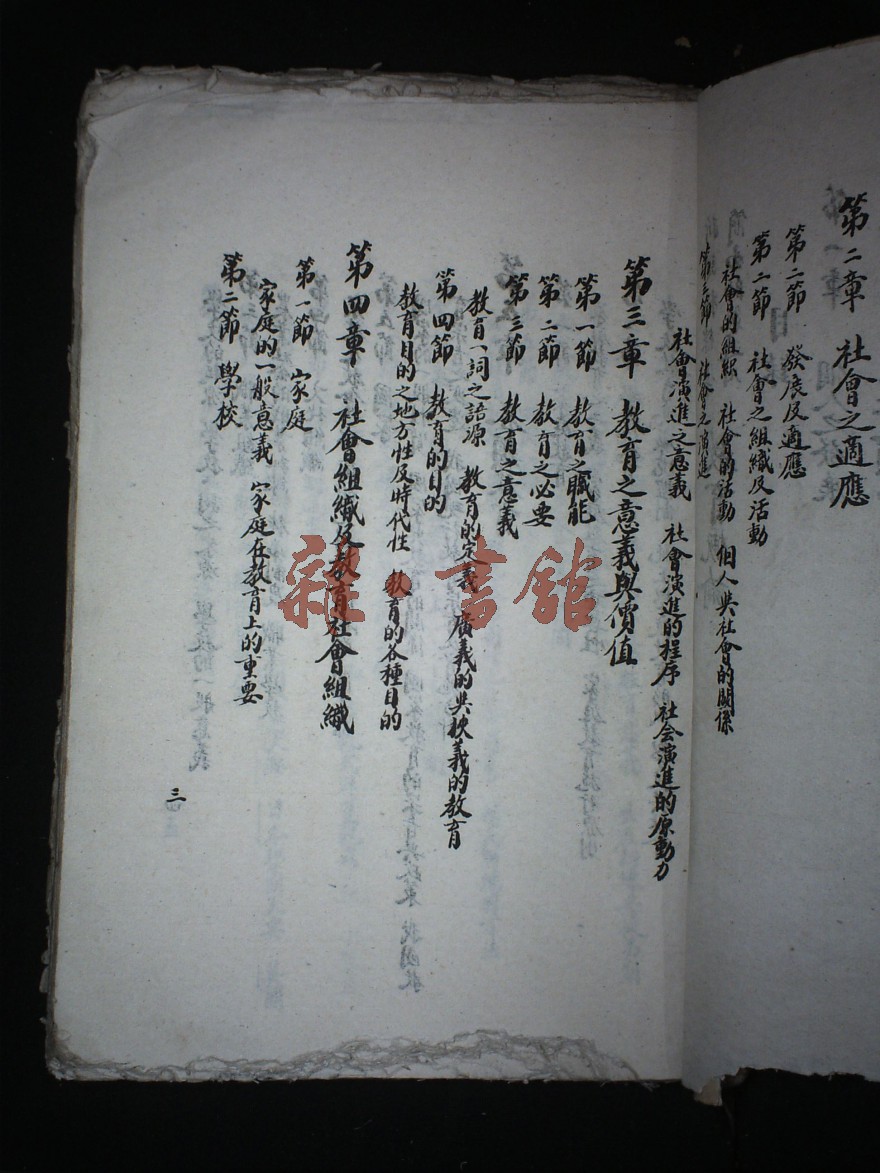 第二章 社會之適應
第二節 發展及適應
第二節 社會之組織及活動
社會的組織 社會的活動 個人與社會的關係
第三節 社會之演進
社會演進之意義 社會演進的程序 社会演進的原動力
第三章 教育之意義與價值
第一節 教育之職能
第二節 教育之必要
第三節 教育之意義
教育一詞之語源 教育的定義 廣義的與狹義的教育
第四節 教育的目的
教育目的之地方性及時代性 教育的各種目的
第四章 社會組織及教育社會組織
第一節 家庭
家庭的一般意義 家庭在教育上的重要
第二節 學校
三
雜·書館